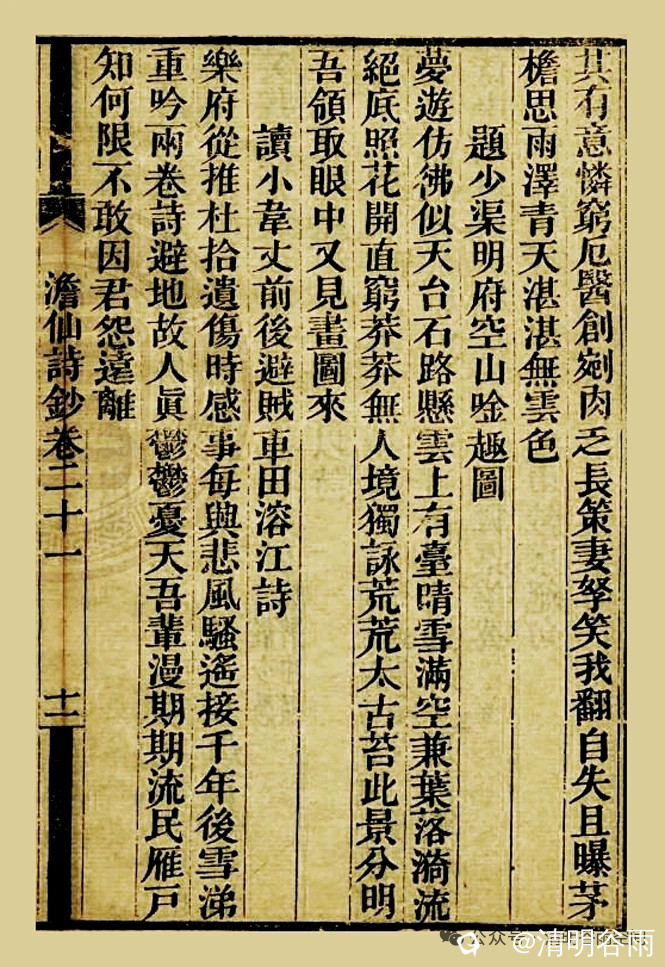 其有意憐窮厄醫創剜肉乏長策妻孥笑我翻自失且曝茅
檐思雨澤青天湛湛無雲色
題少渠明府空山唫趣圖
夢遊仿彿似天台石路懸雲上有臺晴雪滿空兼葉落漪流
絕底照花開直窮莽莽無人境獨詠荒荒太古苔此景分明
吾領取眼中又見畫圖來
讀小韋丈前後避賊車田溶江詩
樂府從推杜拾遺傷時感事每與悲風騷遙接千年後雪涕
重吟兩卷詩避地故人眞鬱鬱憂天吾輩漫期期流民雁戶
知何限不敢因君怨遠離
澹仙詩鈔卷二十一
十二
公众号
@清明谷雨